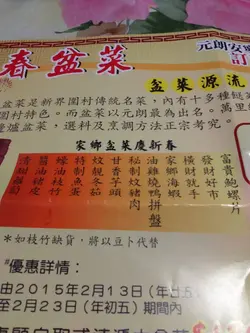 春盆菜
元朗安
訂
盆菜源流
盆菜是新界圍村傳統名菜，內有十多種
圍村特色。而盆菜以元朗最為出名。萬里
爐盆菜，選料及烹調方法正宗考究。
家鄉盆菜慶新春
富貴鮑螺片
發財好市
橫財就手
家鄉海蝦
油雞燒鴨拼盤
秘制炆豬肉
甘香芋頭
炆靚冬菇
特制魚蛋
蠔油枝竹
醬油豬皮
清甜蘿蔔
＊如枝竹缺貨，將以豆卜代替
#優惠詳情：
由2015年2月13日(年廿五
至2月23日(年初五) 期間內